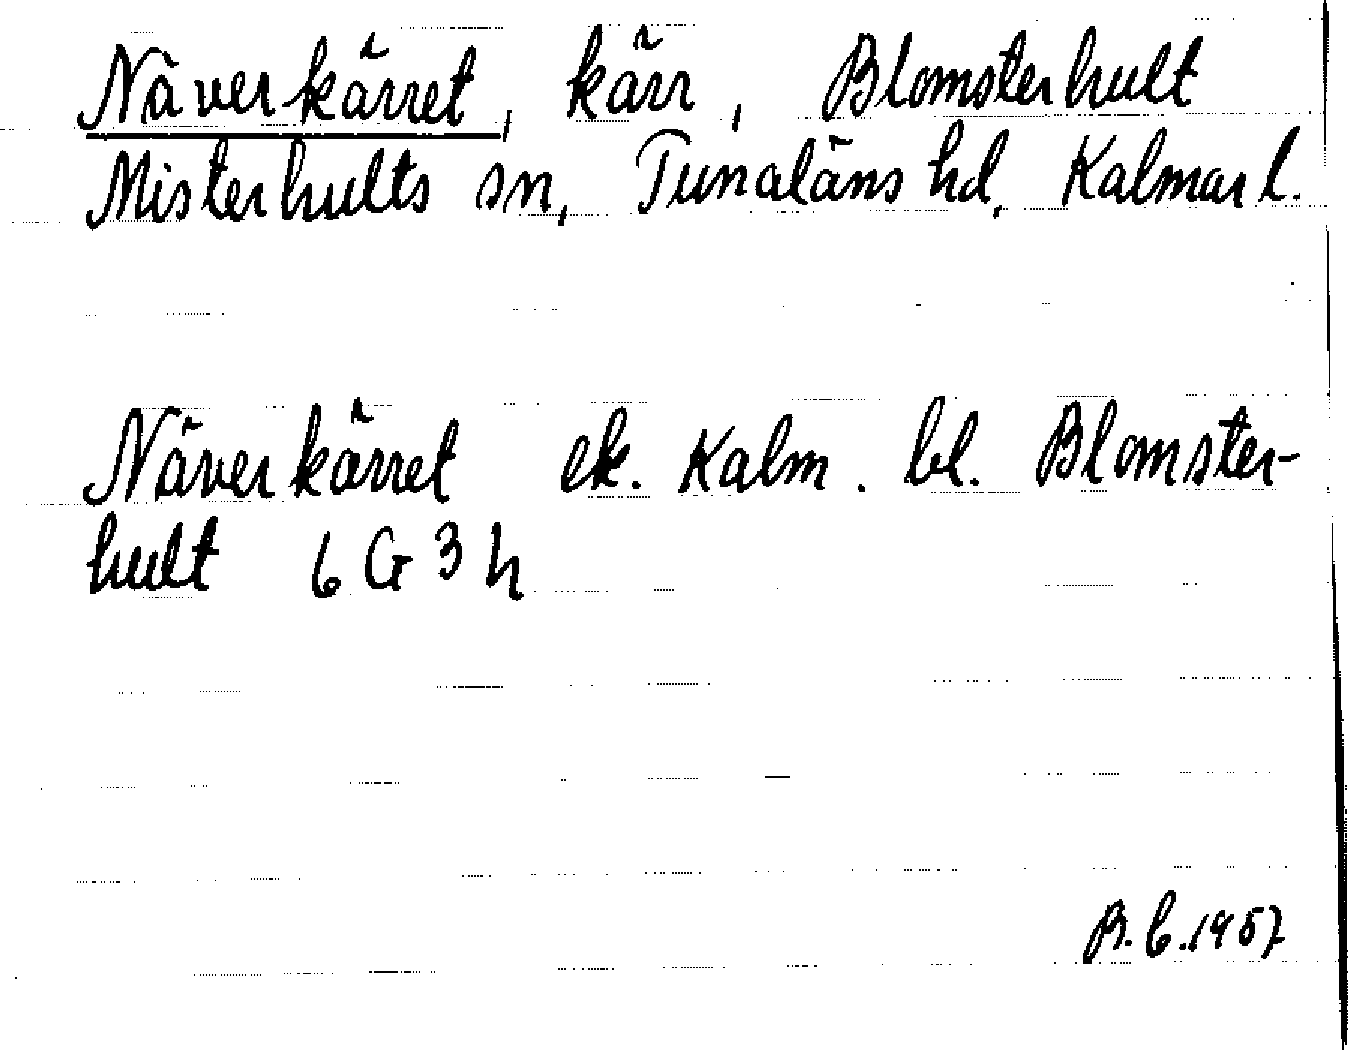 Näverkärret, kärr, Blomsterhult
Misterhults sn, Tunaläns hd, Kalmar l.
Näverkärret ek. Kalm. bl. Blomster-
hult 6G3h
B.C.1957